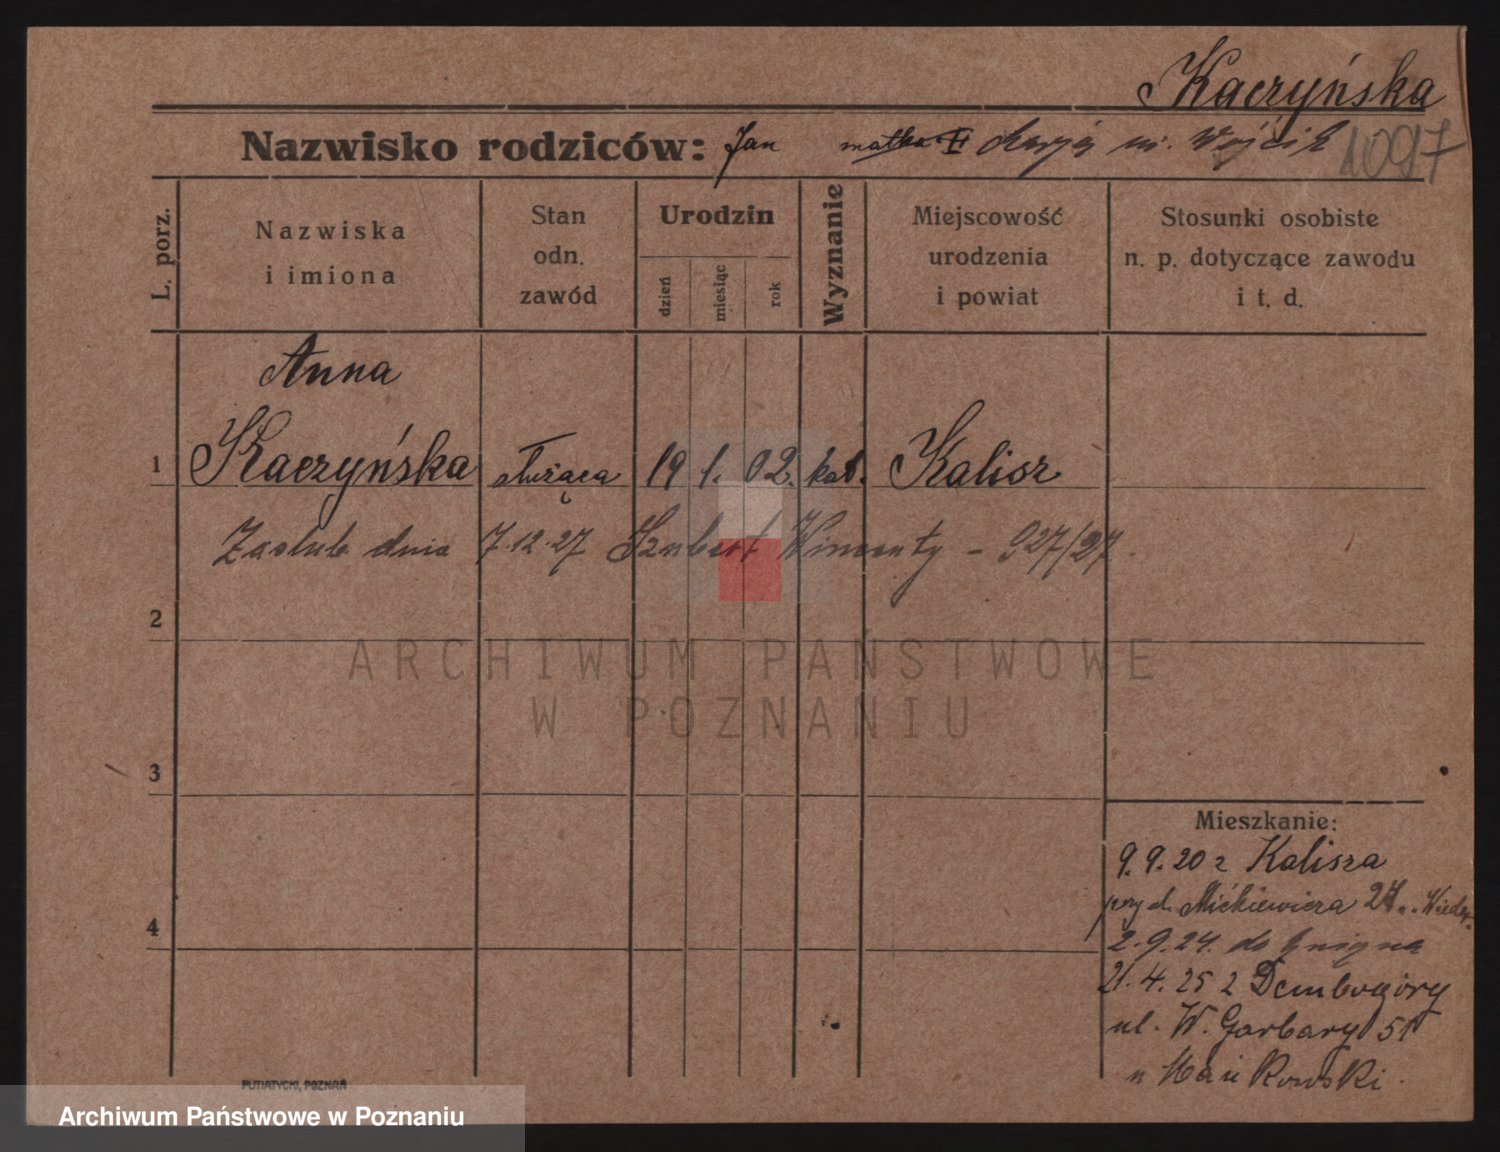 Kaczyńska
Nazwisko rodziców: Jan matka Marja Wójcik 1097
L. porz.
Nazwiska
i imiona
Stan
odn.
zawód
Urodzin
dzień
miesiąc
rok
Wyznanie
Miejscowość
urodzenia
i powiat
Stosunki osobiste
n. p. dotyczące zawodu
i t. d.
Anna
1 Kaczyńska służąca 19 1. 02. kat. Kalisz
Zaslub dnia 7.12.27 Szubert Wincenty - 927/27.
2
3
4
Mieszkanie:
9.9.20 z Kalisza
przy ul. Mickiewicza 27
2.9.24. do
21.4.25 z Dembogóry
ul. W. Garbary 51
n
PUTIATYCKI, POZNAŃ
ARCHIWUM PAŃSTWOWE
W POZNANIU
Archiwum Państwowe w Poznaniu